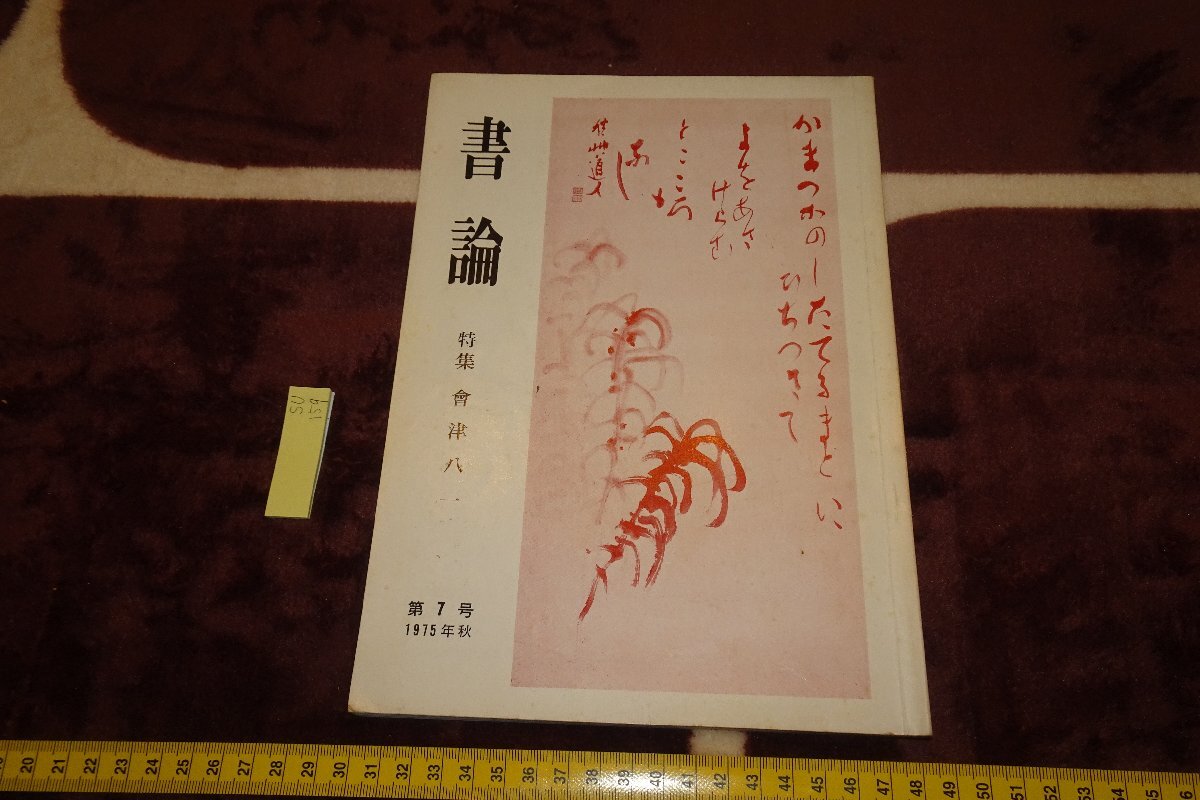 書論
特集 會津八一
第7号
1975年秋
かまつかのしたてるまとに
ひちつきて
よをあさ
けらむ
とこころ
も
なし
秋艸道人
SU
159
20 21 22 23 24 25 26 27 28 29 30 31 32 33 34 35 36 37 38 39 40 41 42 43 44 45 46 47 48 49 50 51 52 53 54 55